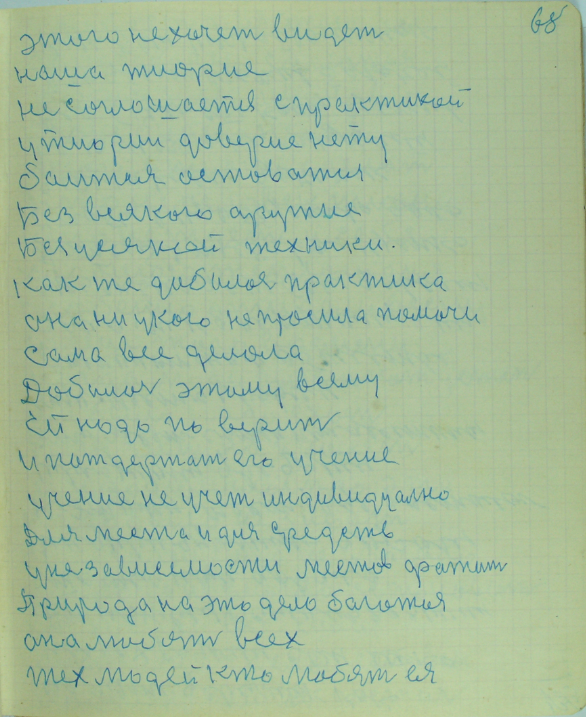 68
этого не хочет видет
наша тиорие
не соглошается с практикой
у тиории доверие нету
боится остоватся
Без всякого аружие
Без усякой техники.
как же добился практика
она ни у кого не просила помочи
сама все делола
Добился этому всему
Ей нодо по верит
и пождержат его учение
учение не учет индивидуално
Для места и для средств
у независемости местов
Природа на это дело богатая
она любят всех
тех людей кто любят ея